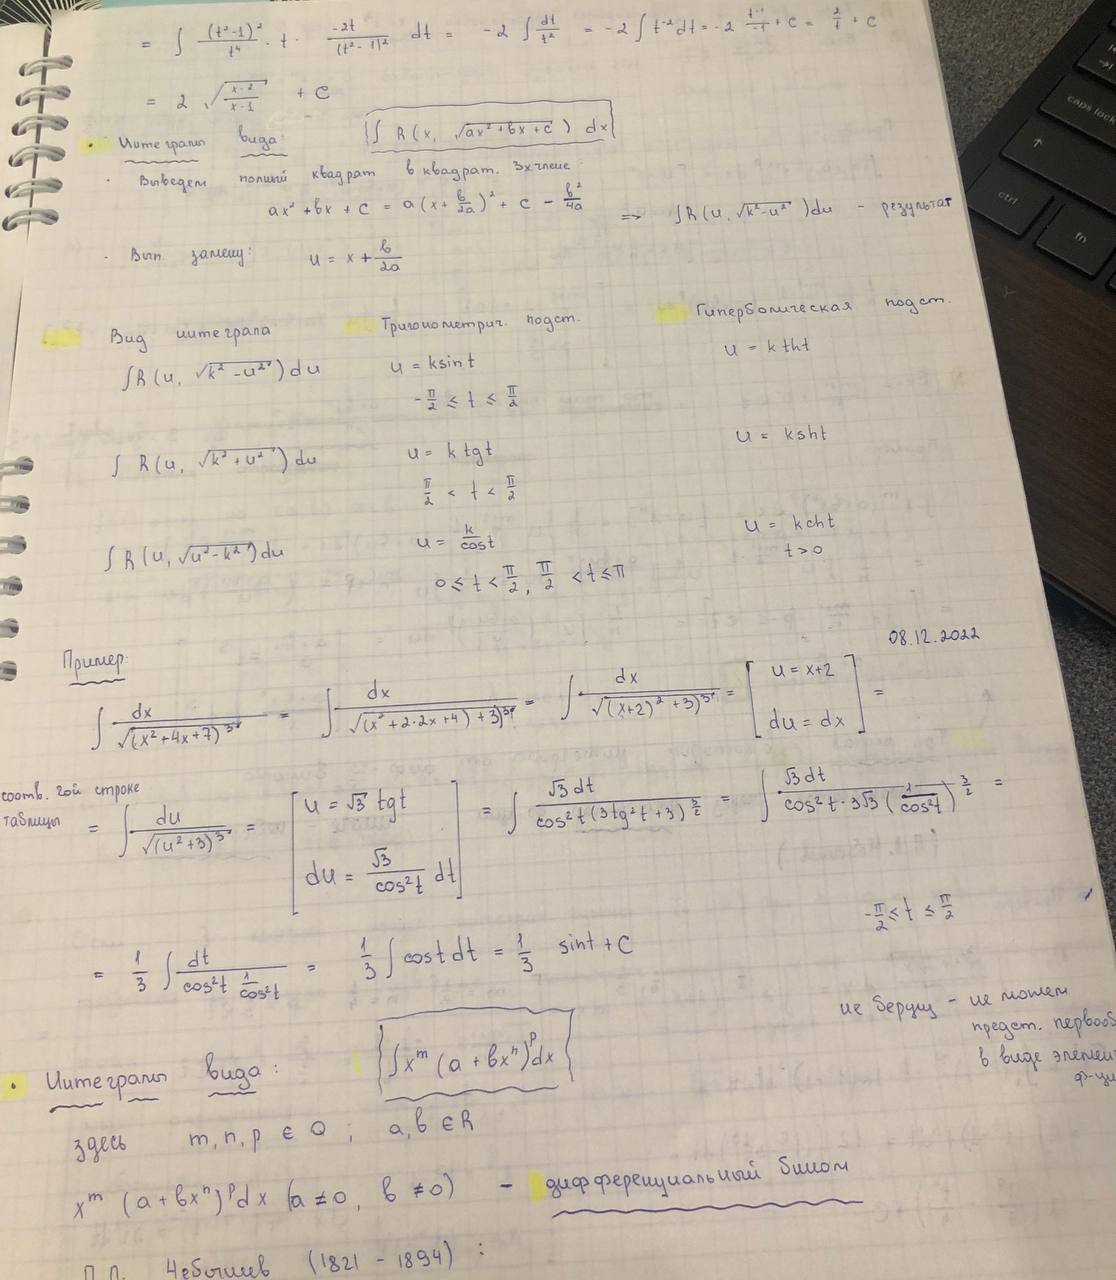 = ∫ (t²-1)²/t⁴ · t · -2t/(t²-1)² dt = -2 ∫ dt/t² = -2 ∫ t⁻² dt = -2 t⁻¹/-1 + C = 2/t + C
= 2 √(x-2/x-1) + C
• Интегралы вида: ∫ R(x, √ax²+bx+c) dx
· Выведем полный квадрат в квадрат. 3хчлене:
ax² + bx + c = a(x + b/2a)² + c - b²/4a => ∫R(u, √k²-u²)du - результат
· Вып. замену: u = x + b/2a
Вид интеграла Тригонометрич. подст. Гиперболическая подст.
∫R(u, √k²-u²)du u = ksint u = k tht
-π/2 ≤ t ≤ π/2
∫ R(u, √k²+u²)du u = k tgt u = ksht
π/2 < t < π/2
∫R(u, √u²-k²)du u = k/cost u = kcht
t>0
0 ≤ t < π/2, π/2 < t ≤ π
08.12.2022
Пример:
∫ dx/√(x²+4x+7)³ = ∫ dx/√(x²+2·2x+4)+3)³ = ∫ dx/√(x+2)²+3)³ = [u = x+2
du = dx] =
соотв. 2ой строке
таблицы
= ∫ du/√(u²+3)³ = [u = √3 tgt
du = √3/cos²t dt] = ∫ √3 dt/cos²t(3tg²t+3)^3/2 = ∫ √3 dt/cos²t·3√3(1/cos²t)^3/2 =
-π/2 ≤ t ≤ π/2
= 1/3 ∫ dt/cos²t 1/cos²t = 1/3 ∫ cost dt = 1/3 sint + C
не берущ - не можем
предст. первооб
в виде элемен
ф-ци
• Интегралы вида: ∫x^m (a + bx^n)^p dx
здесь m, n, p ∈ Q ; a, b ∈ R
x^m (a + bx^n)^p dx (a ≠ 0, b ≠ 0) - дифференциальный бином
П.Л. Чебышев (1821 - 1894) :